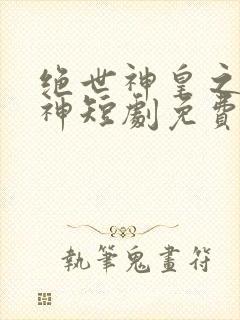 绝世神皇之
神短劇免費
執筆鬼畫符